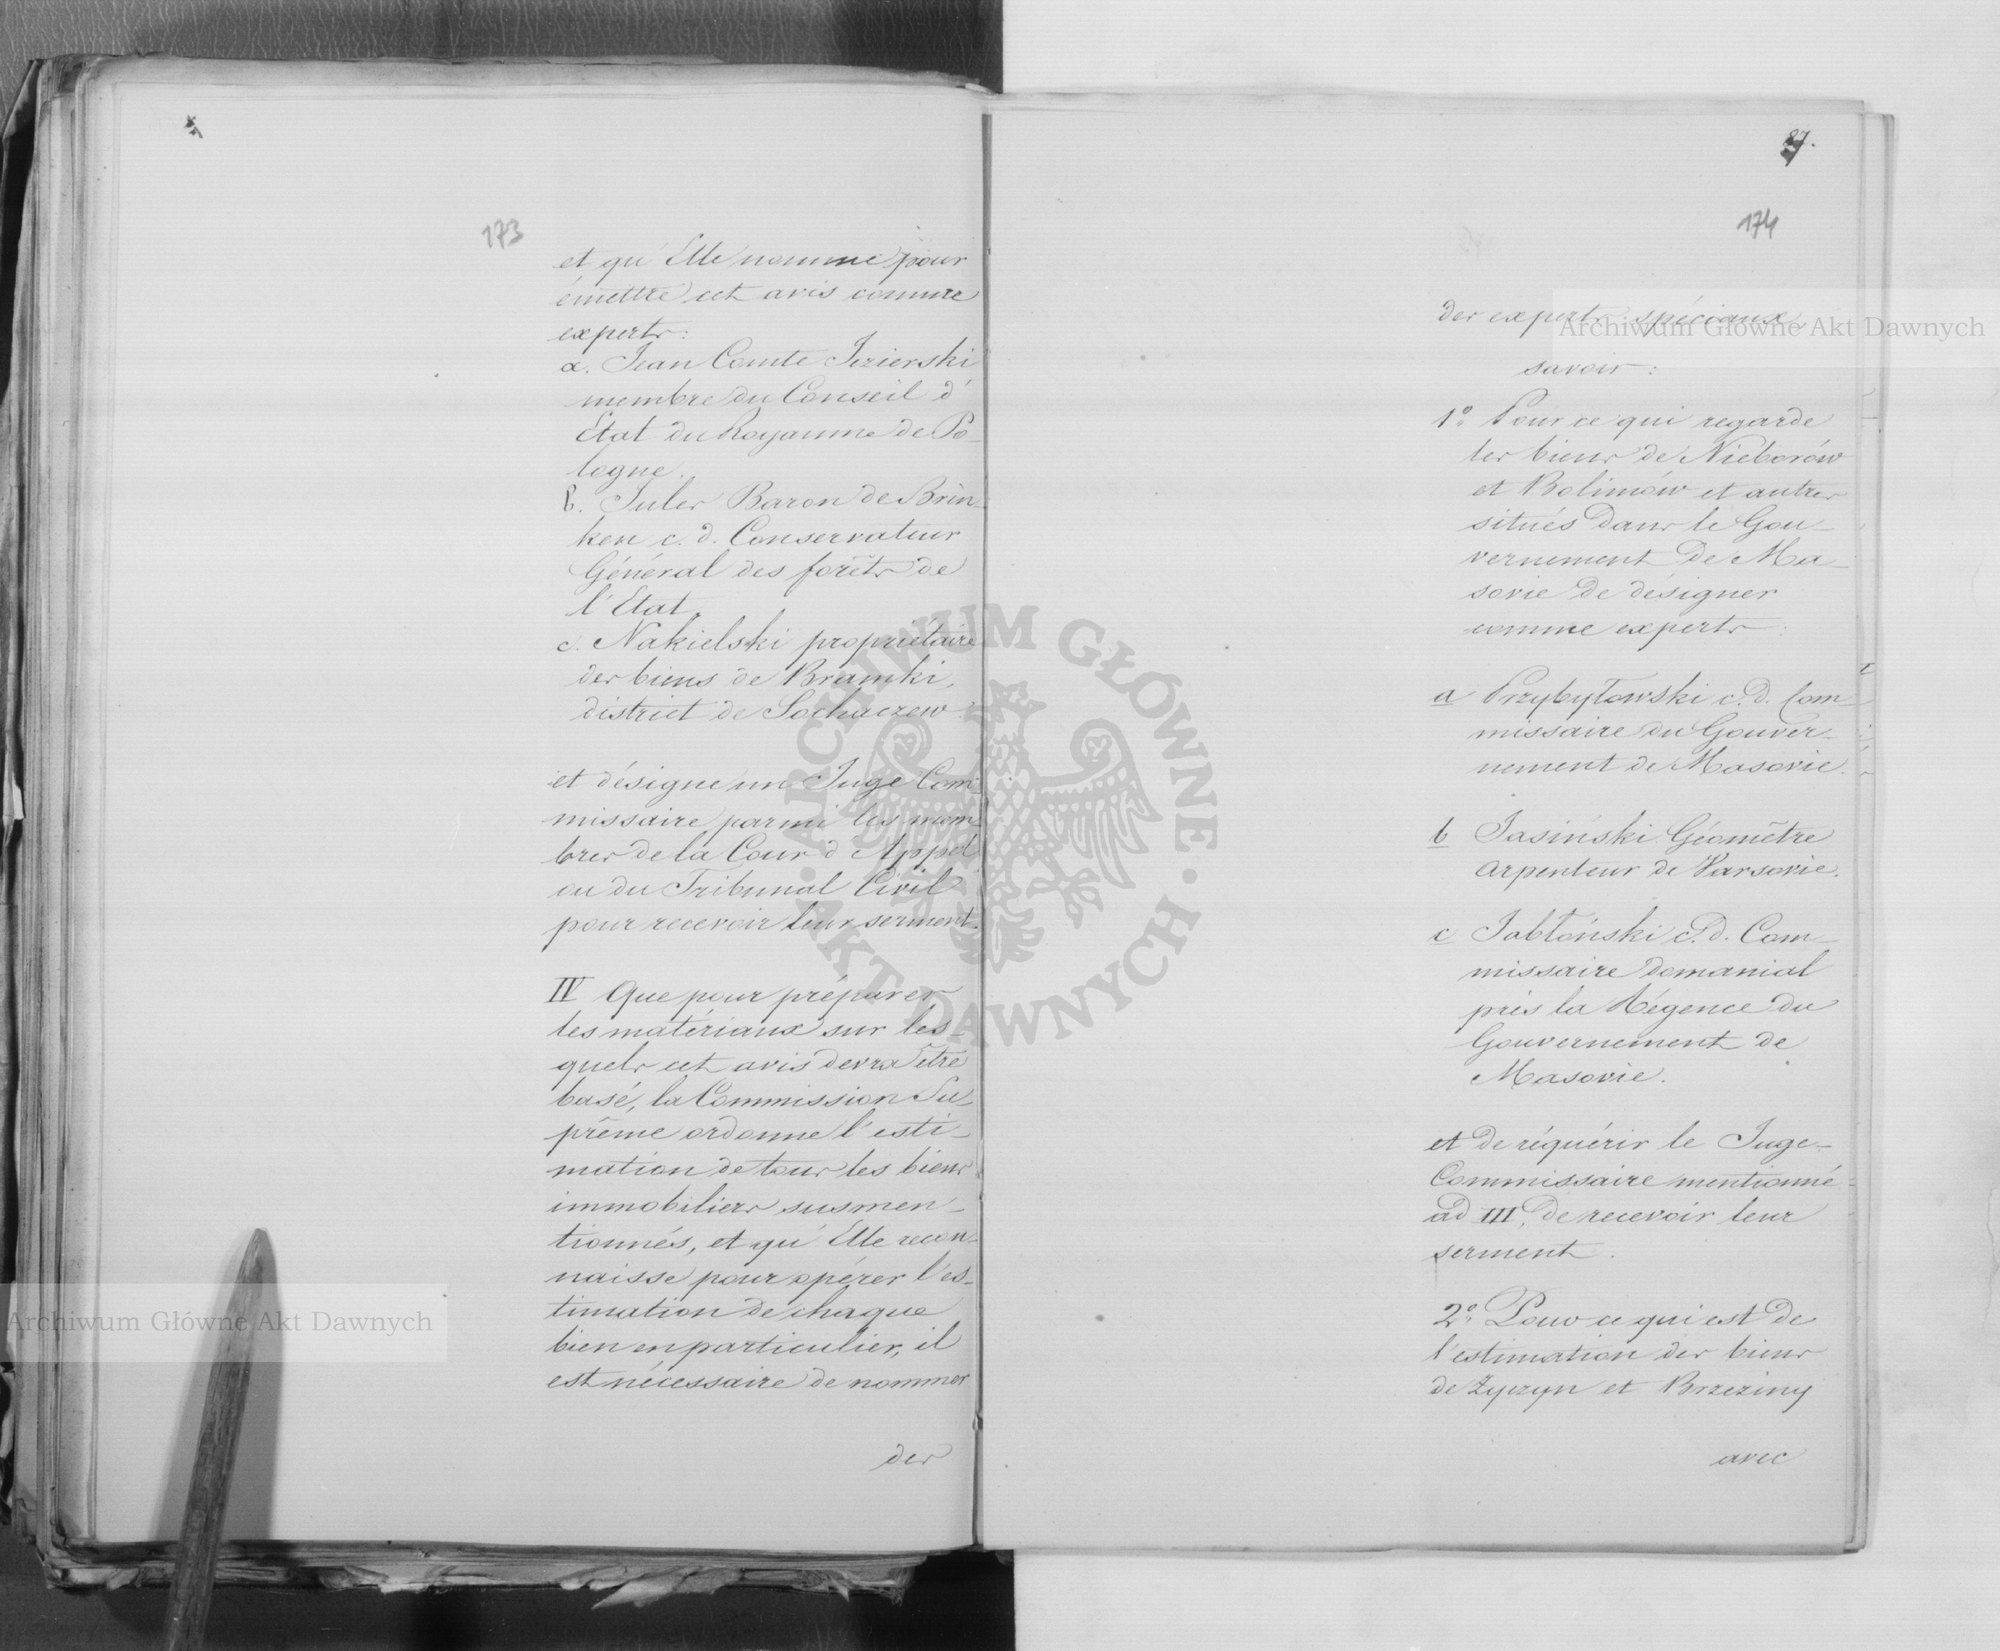 173
et qu'Elle nomme pour
émettre cet avis comme
experts:
a. Jean Comte Jezierski
membre du Conseil d'
Etat du Royaume de Po-
logne.
b. Jules Baron de Brin-
ken c. d. Conservateur
Général des forêts de
l'Etat.
c. Nakielski propriétaire
des biens de Bramki,
district de Sochaczew.
et désigne un Juge Com-
missaire parmi les mem-
bres de la Cour d'Appel
ou du Tribunal Civil
pour recevoir leur serment.
IV Que pour préparer
les matériaux sur les-
quels cet avis devra être
basé, la Commission Su-
prême ordonne l'esti-
mation de tous les biens
immobiliers susmen-
tionnés, et qu'Elle recon-
naisse pour opérer l'es-
timation de chaque
bien en particulier, il
est nécessaire de nommer
des
87.
174
des experts spéciaux,
savoir:
1º. Pour ce qui regarde
les biens de Nieborów
et Bolimów et autres
situés dans le Gou-
vernement de Ma-
sovie de désigner
comme experts:
a Przybyłowski c. d. Com-
missaire du Gouver-
nement de Masovie.
b Jasiński Géomètre
Arpenteur de Varsovie.
c Jabłoński c. d. Com-
missaire domanial
près la Régence du
Gouvernement de
Masovie.
et de réquérir le Juge-
Commissaire mentionné
ad III, de recevoir leur
serment.
2º. Pour ce qui est de
l'estimation des biens
de Zyczyn et Brzeziny
avec
Archiwum Główne Akt Dawnych
Archiwum Główne Akt Dawnych
ARCHIWUM GŁÓWNE · AKT DAWNYCH ·